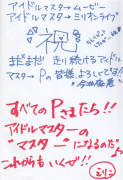 アイドルマスター→ムービー
アイドルマスター→ミリオンライブ
祝
まだまだ 走り続けるアイドル
マスター→Pの皆様よろしくでーす!!
すべてのPさまたち!!
アイドルマスターの
"マスター"になるのだ
これからもいくぜ!!